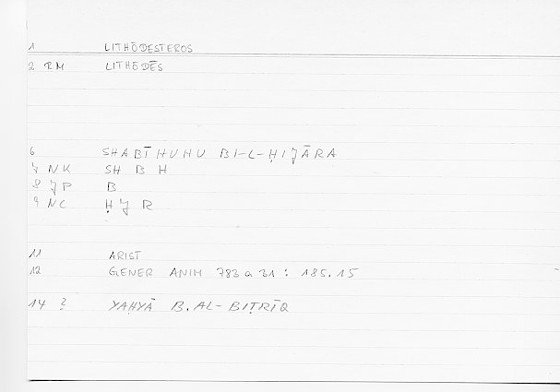 1 LITHŌDESTEROS
2 RM LITHEDĒS
6 SHABĪHUHU BI-L-ḤIJĀRA
7 NK SH B H
8 JP B
9 NC Ḥ J R
11 ARIST
12 GENER ANIM 783 a 21 : 185.15
14 ? YAḤYĀ B. AL-BIṬRĪQ